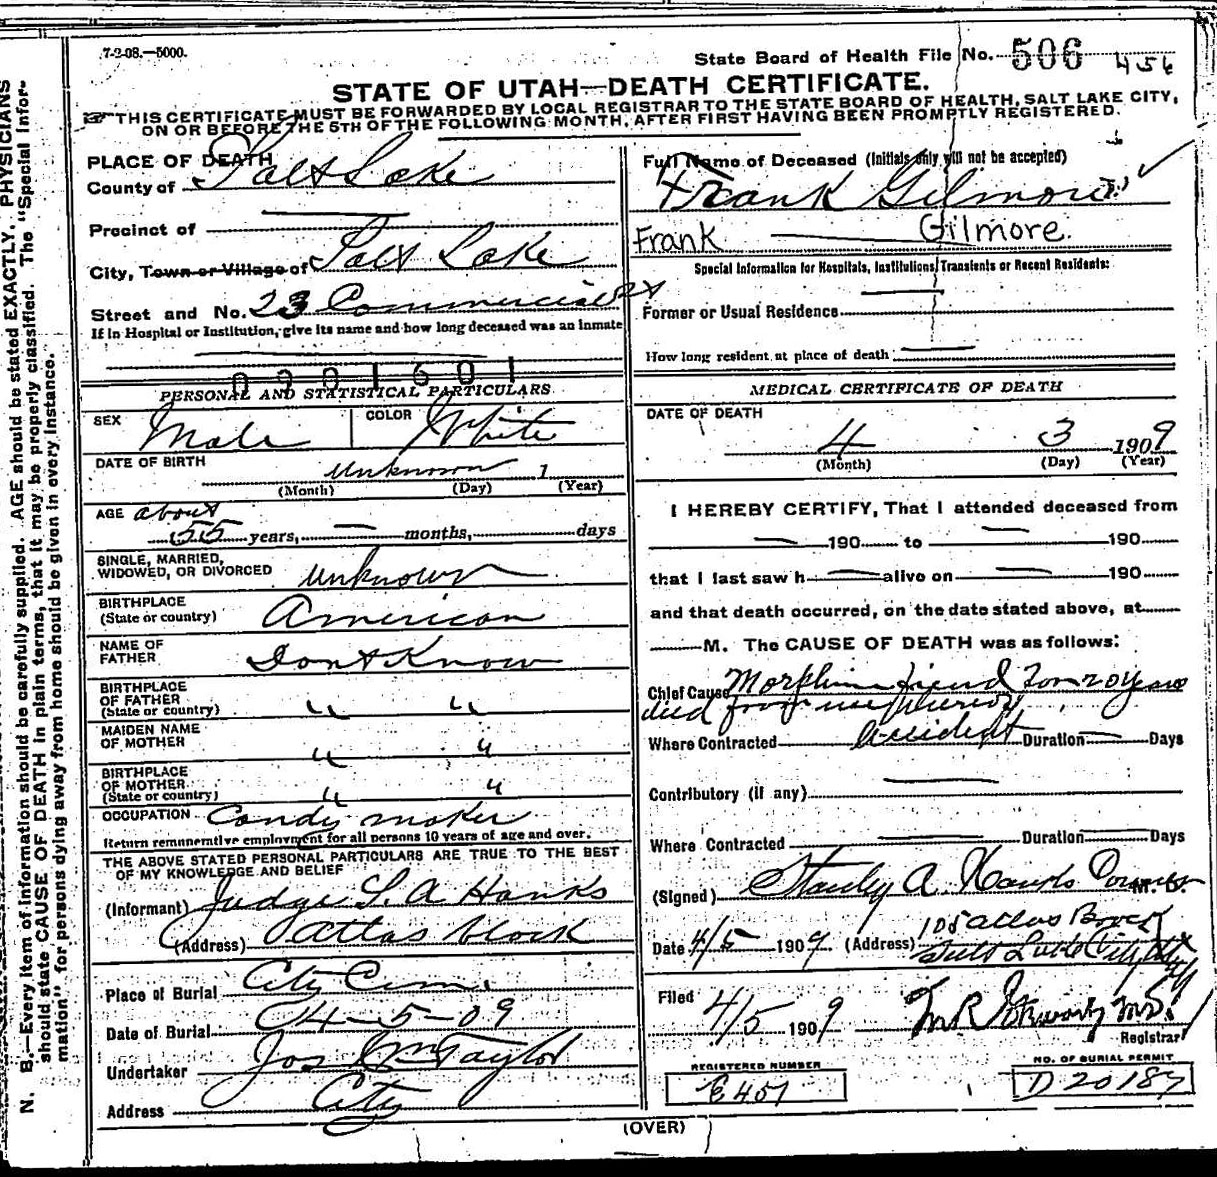 7-2-08.—5000.
State Board of Health File No. 506 456
STATE OF UTAH—DEATH CERTIFICATE.
☞THIS CERTIFICATE MUST BE FORWARDED BY LOCAL REGISTRAR TO THE STATE BOARD OF HEALTH, SALT LAKE CITY,
ON OR BEFORE THE 5TH OF THE FOLLOWING MONTH, AFTER FIRST HAVING BEEN PROMPTLY REGISTERED.
N. B.—Every item of information should be carefully supplied. AGE should be stated EXACTLY. PHYSICIANS
should state CAUSE OF DEATH in plain terms, that it may be properly classified. The "Special Infor-
mation" for persons dying away from home should be given in every instance.
PLACE OF DEATH
County of Salt Lake
Precinct of
City, Town or Village of Salt Lake
Street and No. 23 Commercial St
If in Hospital or Institution, give its name and how long deceased was an inmate
0901601
PERSONAL AND STATISTICAL PARTICULARS
SEX Male COLOR White
DATE OF BIRTH Unknown 1
(Month) (Day) (Year)
AGE about
55 years, — months, days
SINGLE, MARRIED,
WIDOWED, OR DIVORCED Unknown
BIRTHPLACE
(State or country) American
NAME OF
FATHER Dont Know
BIRTHPLACE
OF FATHER
(State or country) " "
MAIDEN NAME
OF MOTHER " "
BIRTHPLACE
OF MOTHER
(State or country) " "
OCCUPATION Candy maker
Return remunerative employment for all persons 10 years of age and over.
THE ABOVE STATED PERSONAL PARTICULARS ARE TRUE TO THE BEST
OF MY KNOWLEDGE AND BELIEF
(Informant) Judge S. A Hanks
(Address) Atlas block
Place of Burial City Cem.
Date of Burial 4-5-09
Undertaker Jos Wm Taylor
Address City
Full Name of Deceased (Initials only will not be accepted)
Frank Gilmore
Frank Gilmore.
Special Information for Hospitals, Institutions, Transients or Recent Residents:
Former or Usual Residence
How long resident at place of death
MEDICAL CERTIFICATE OF DEATH
DATE OF DEATH
4 3 1909
(Month) (Day) (Year)
I HEREBY CERTIFY, That I attended deceased from
— 190 to — 190
that I last saw h — alive on — 190
and that death occurred, on the date stated above, at
M. The CAUSE OF DEATH was as follows:
Chief Cause Morphine fiend
died from use
Where Contracted Accident Duration Days
Contributory (if any)
Where Contracted Duration Days
(Signed) Stanley A. Hanks Coroner M. D.
Date 4/5 1909 (Address) 105 Atlas Block
Salt Lake City
Filed 4/5 1909
Registrar
REGISTERED NUMBER
E 451
NO. OF BURIAL PERMIT
D 20187
(OVER)